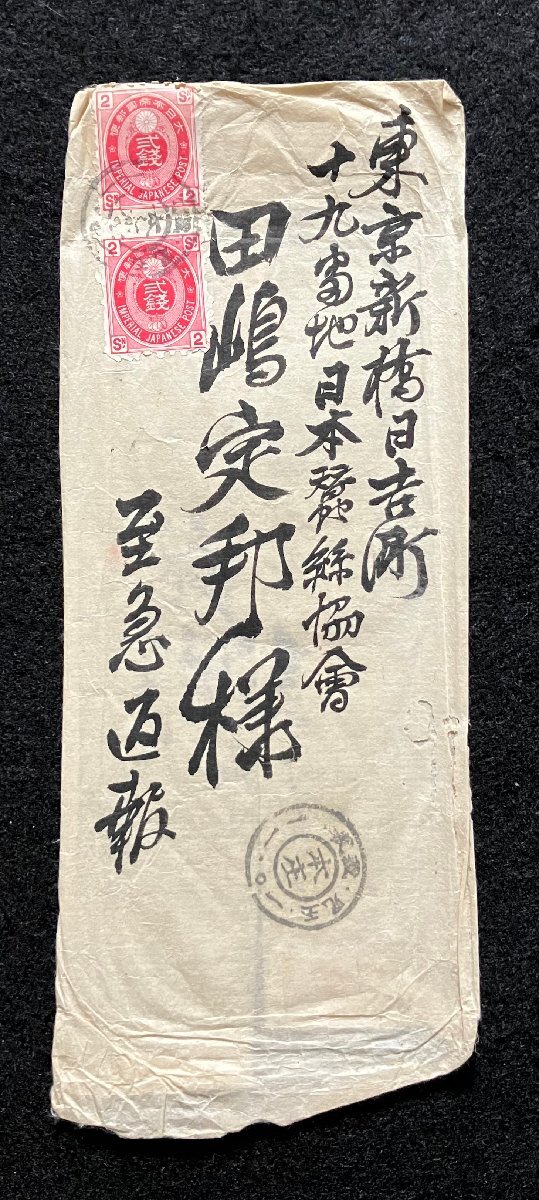 東京新橋日吉町
十九番地日本蚕絲協會
田嶋定邦様
至急迈報
大日本帝國郵便
2 SN
貳錢
IMPERIAL JAPANESE POST
SN 2
大日本帝國郵便
2
貳錢
IMPERIAL JAPANESE POST
SN 2
武蔵・児玉
本庄